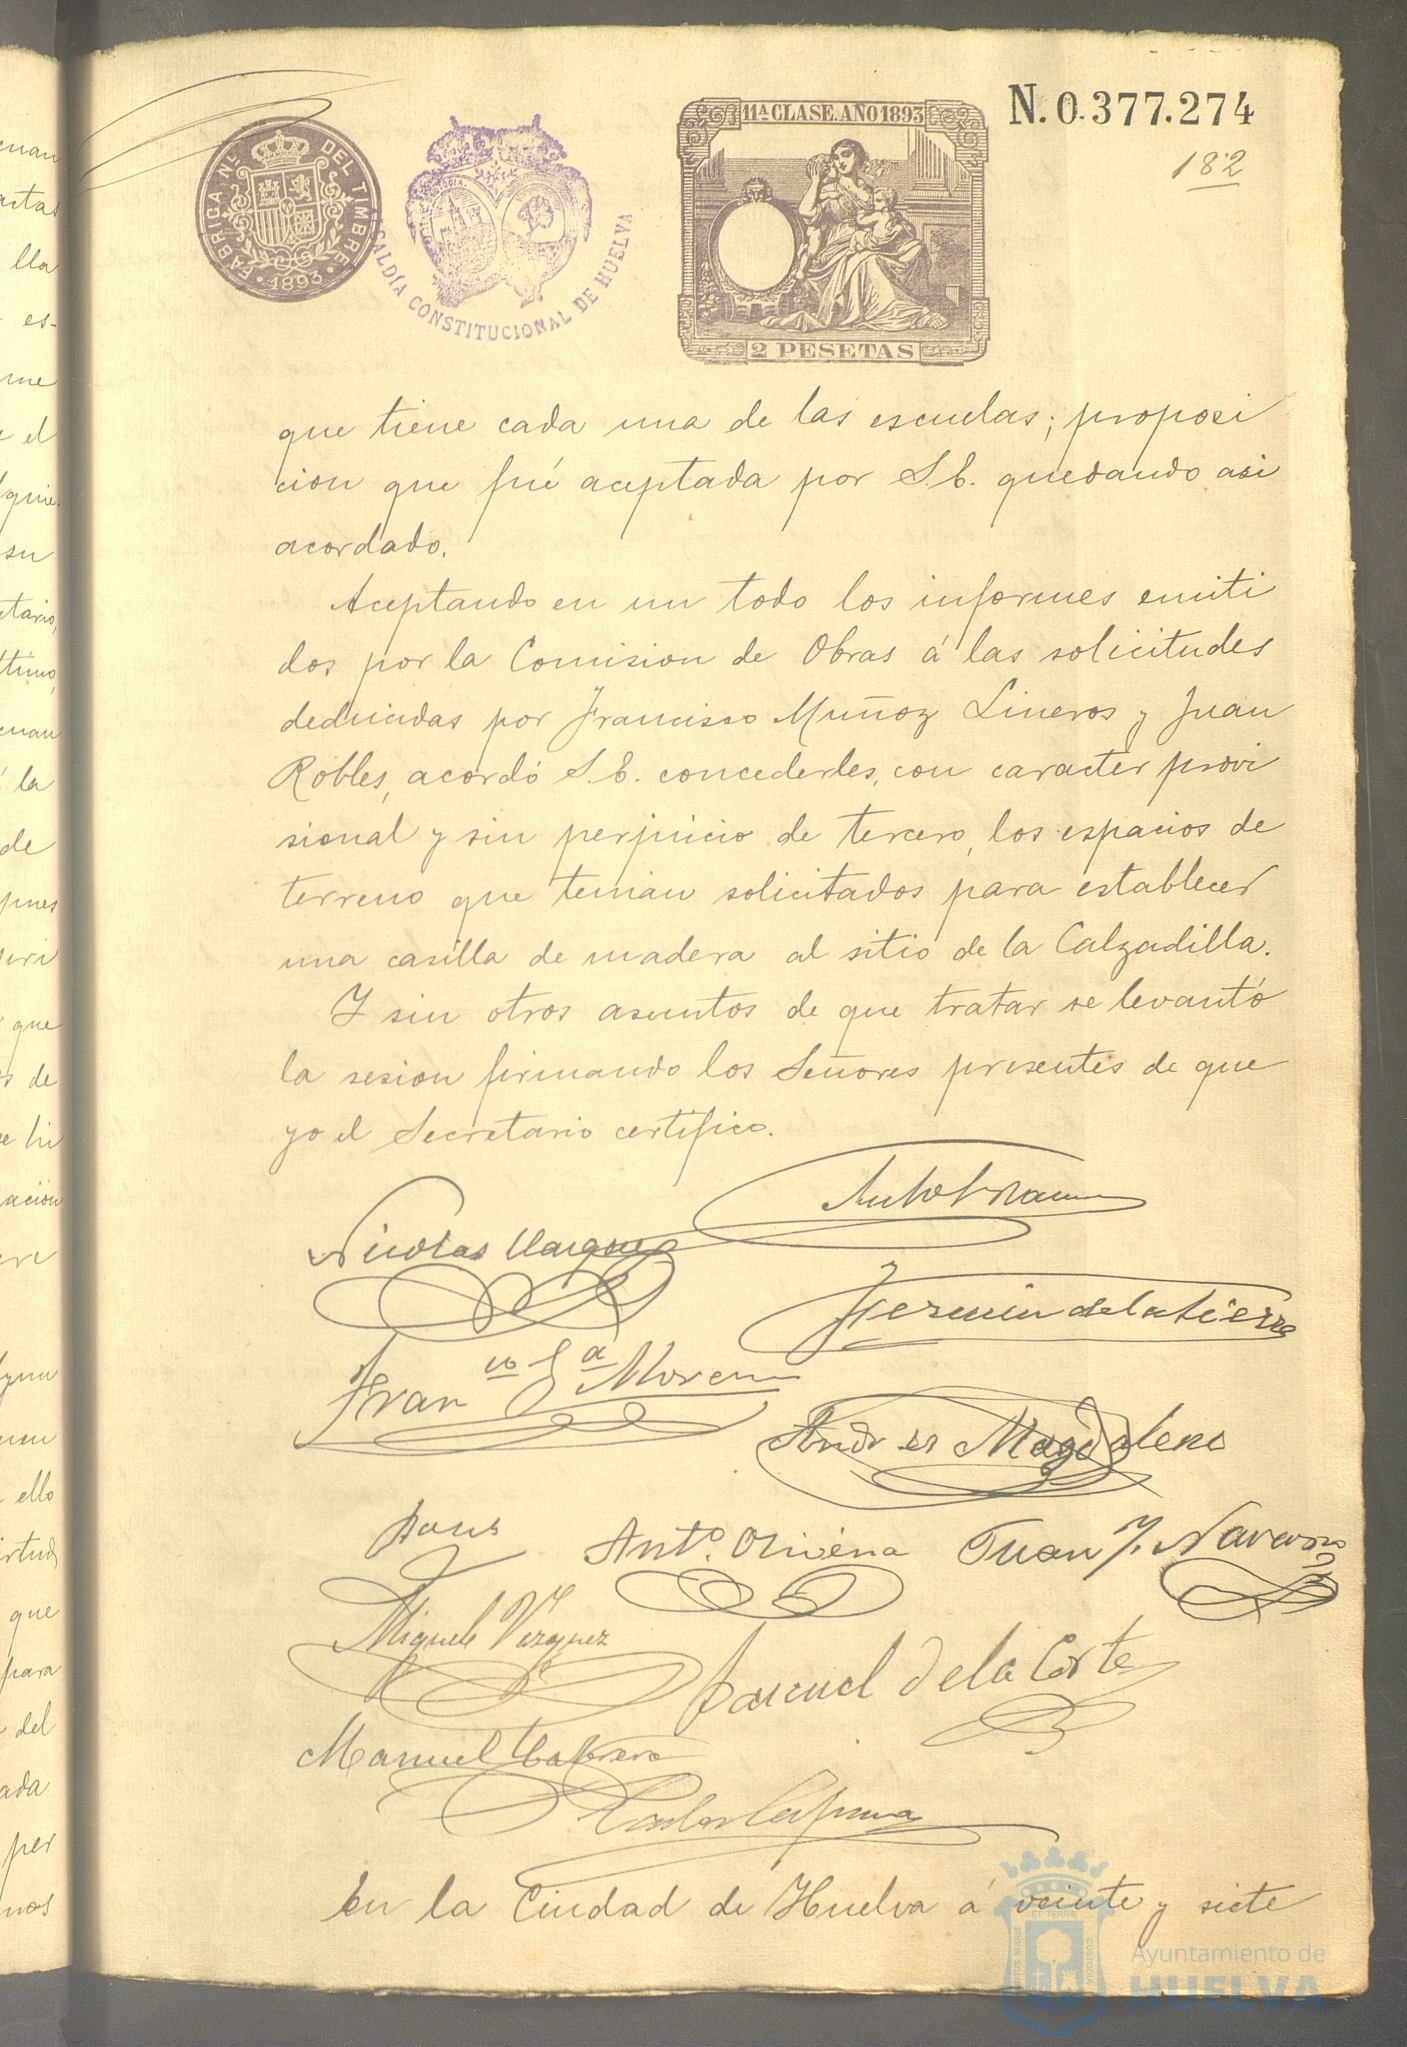 N. 0.377.274
182
FÁBRICA Nˡ. DEL TIMBRE
1893
ALCALDÍA CONSTITUCIONAL DE HUELVA
11ª CLASE. AÑO 1893
2 PESETAS
que tiene cada una de las escuelas; proposi
cion que fué aceptada por S.E. quedando asi
acordado.
Aceptando en un todo los informes emiti
dos por la Comision de Obras á las solicitudes
deducidas por Francisco Muñoz Lineros y Juan
Robles, acordó S.E. concederles, con caracter provi
sional y sin perjuicio de tercero, los espacios de
terreno que tenian solicitados para establecer
una casilla de madera al sitio de la Calzadilla.
Y sin otros asuntos de que tratar se levantó
la sesion firmando los Señores presentes de que
yo el Secretario certifico.
Nicolas Vazquez
Fermin de la Sierra
Franco Gª Moreno
Andres Magdaleno
Antº. Oliveira
Juan J. Navarro
Miguel Vazquez
Manuel de la Corte
Manuel Cabrera
En la Ciudad de Huelva á veinte y siete
Ayuntamiento de
HUELVA